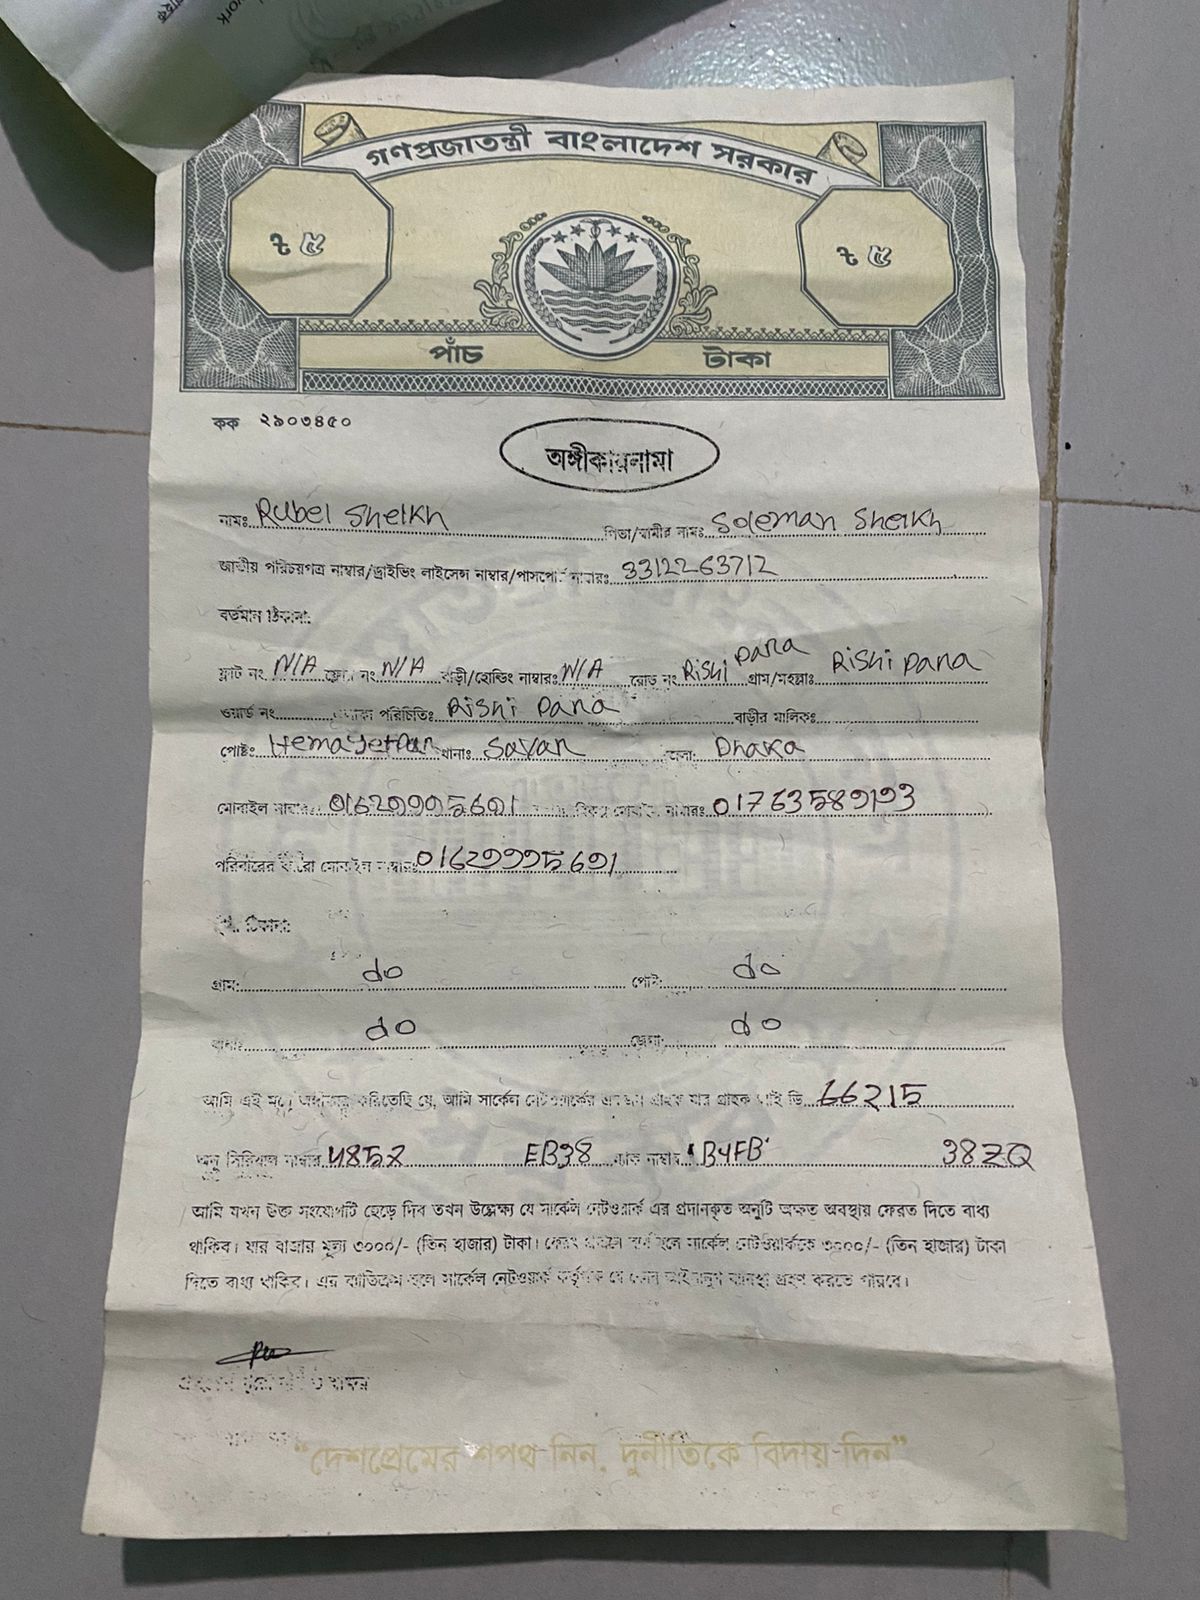 গণপ্রজাতন্ত্রী বাংলাদেশ সরকার
৳ ৫ ৳ ৫
পাঁচ টাকা
কক ২৯০৩৪৫০
অঙ্গীকারনামা
নামঃ Rubel Sheikh পিতা/স্বামীর নামঃ Soleman Sheikh
জাতীয় পরিচয়পত্র নাম্বার/ড্রাইভিং লাইসেন্স নাম্বার/পাসপোর্ট নাম্বারঃ 3312263712
বর্তমান ঠিকানা:
ফ্লাট নং N/A নং N/A বাড়ী/হোল্ডিং নাম্বারঃ N/A রোড নং Rishi para গ্রাম/মহল্লাঃ Rishi para
ওয়ার্ড নং পরিচিতিঃ Rishi para বাড়ীর মালিকঃ
পোষ্টঃ Hemayetpur থানাঃ Savar জেলা: Dhaka
মোবাইল নাম্বারঃ 01629995691 বিকল্প মোবাইল নাম্বারঃ 01763589193
পরিবারের কারো মোবাইল নাম্বারঃ 01629995691
ঠিকানা:
গ্রাম: do পোষ্ট: do
do জেলা: do
আমি এই মর্মে অঙ্গীকার করিতেছি যে, আমি সার্কেল নেটওয়ার্কের একজন গ্রাহক যার গ্রাহক আই ডি 66215
অনু সিরিয়াল নাম্বার EB38 ম্যাক নাম্বার B4FB 38ZQ
আমি যখন উক্ত সংযোগটি ছেড়ে দিব তখন উল্লেক্ষ্য যে সার্কেল নেটওয়ার্ক এর প্রদানকৃত অনুটি অক্ষত অবস্থায় ফেরত দিতে বাধ্য
থাকিব। যার বাজার মূল্য ৩০০০/- (তিন হাজার) টাকা। ফেরৎ দিতে ব্যর্থ হলে সার্কেল নেটওয়ার্ককে ৩০০০/- (তিন হাজার) টাকা
দিতে বাধ্য থাকিব। এর ব্যতিক্রম হলে সার্কেল নেটওয়ার্ক কর্তৃপক্ষ যে কোন আইনানুগ ব্যবস্থা গ্রহণ করতে পারবে।
“দেশপ্রেমের শপথ নিন, দুর্নীতিকে বিদায় দিন”